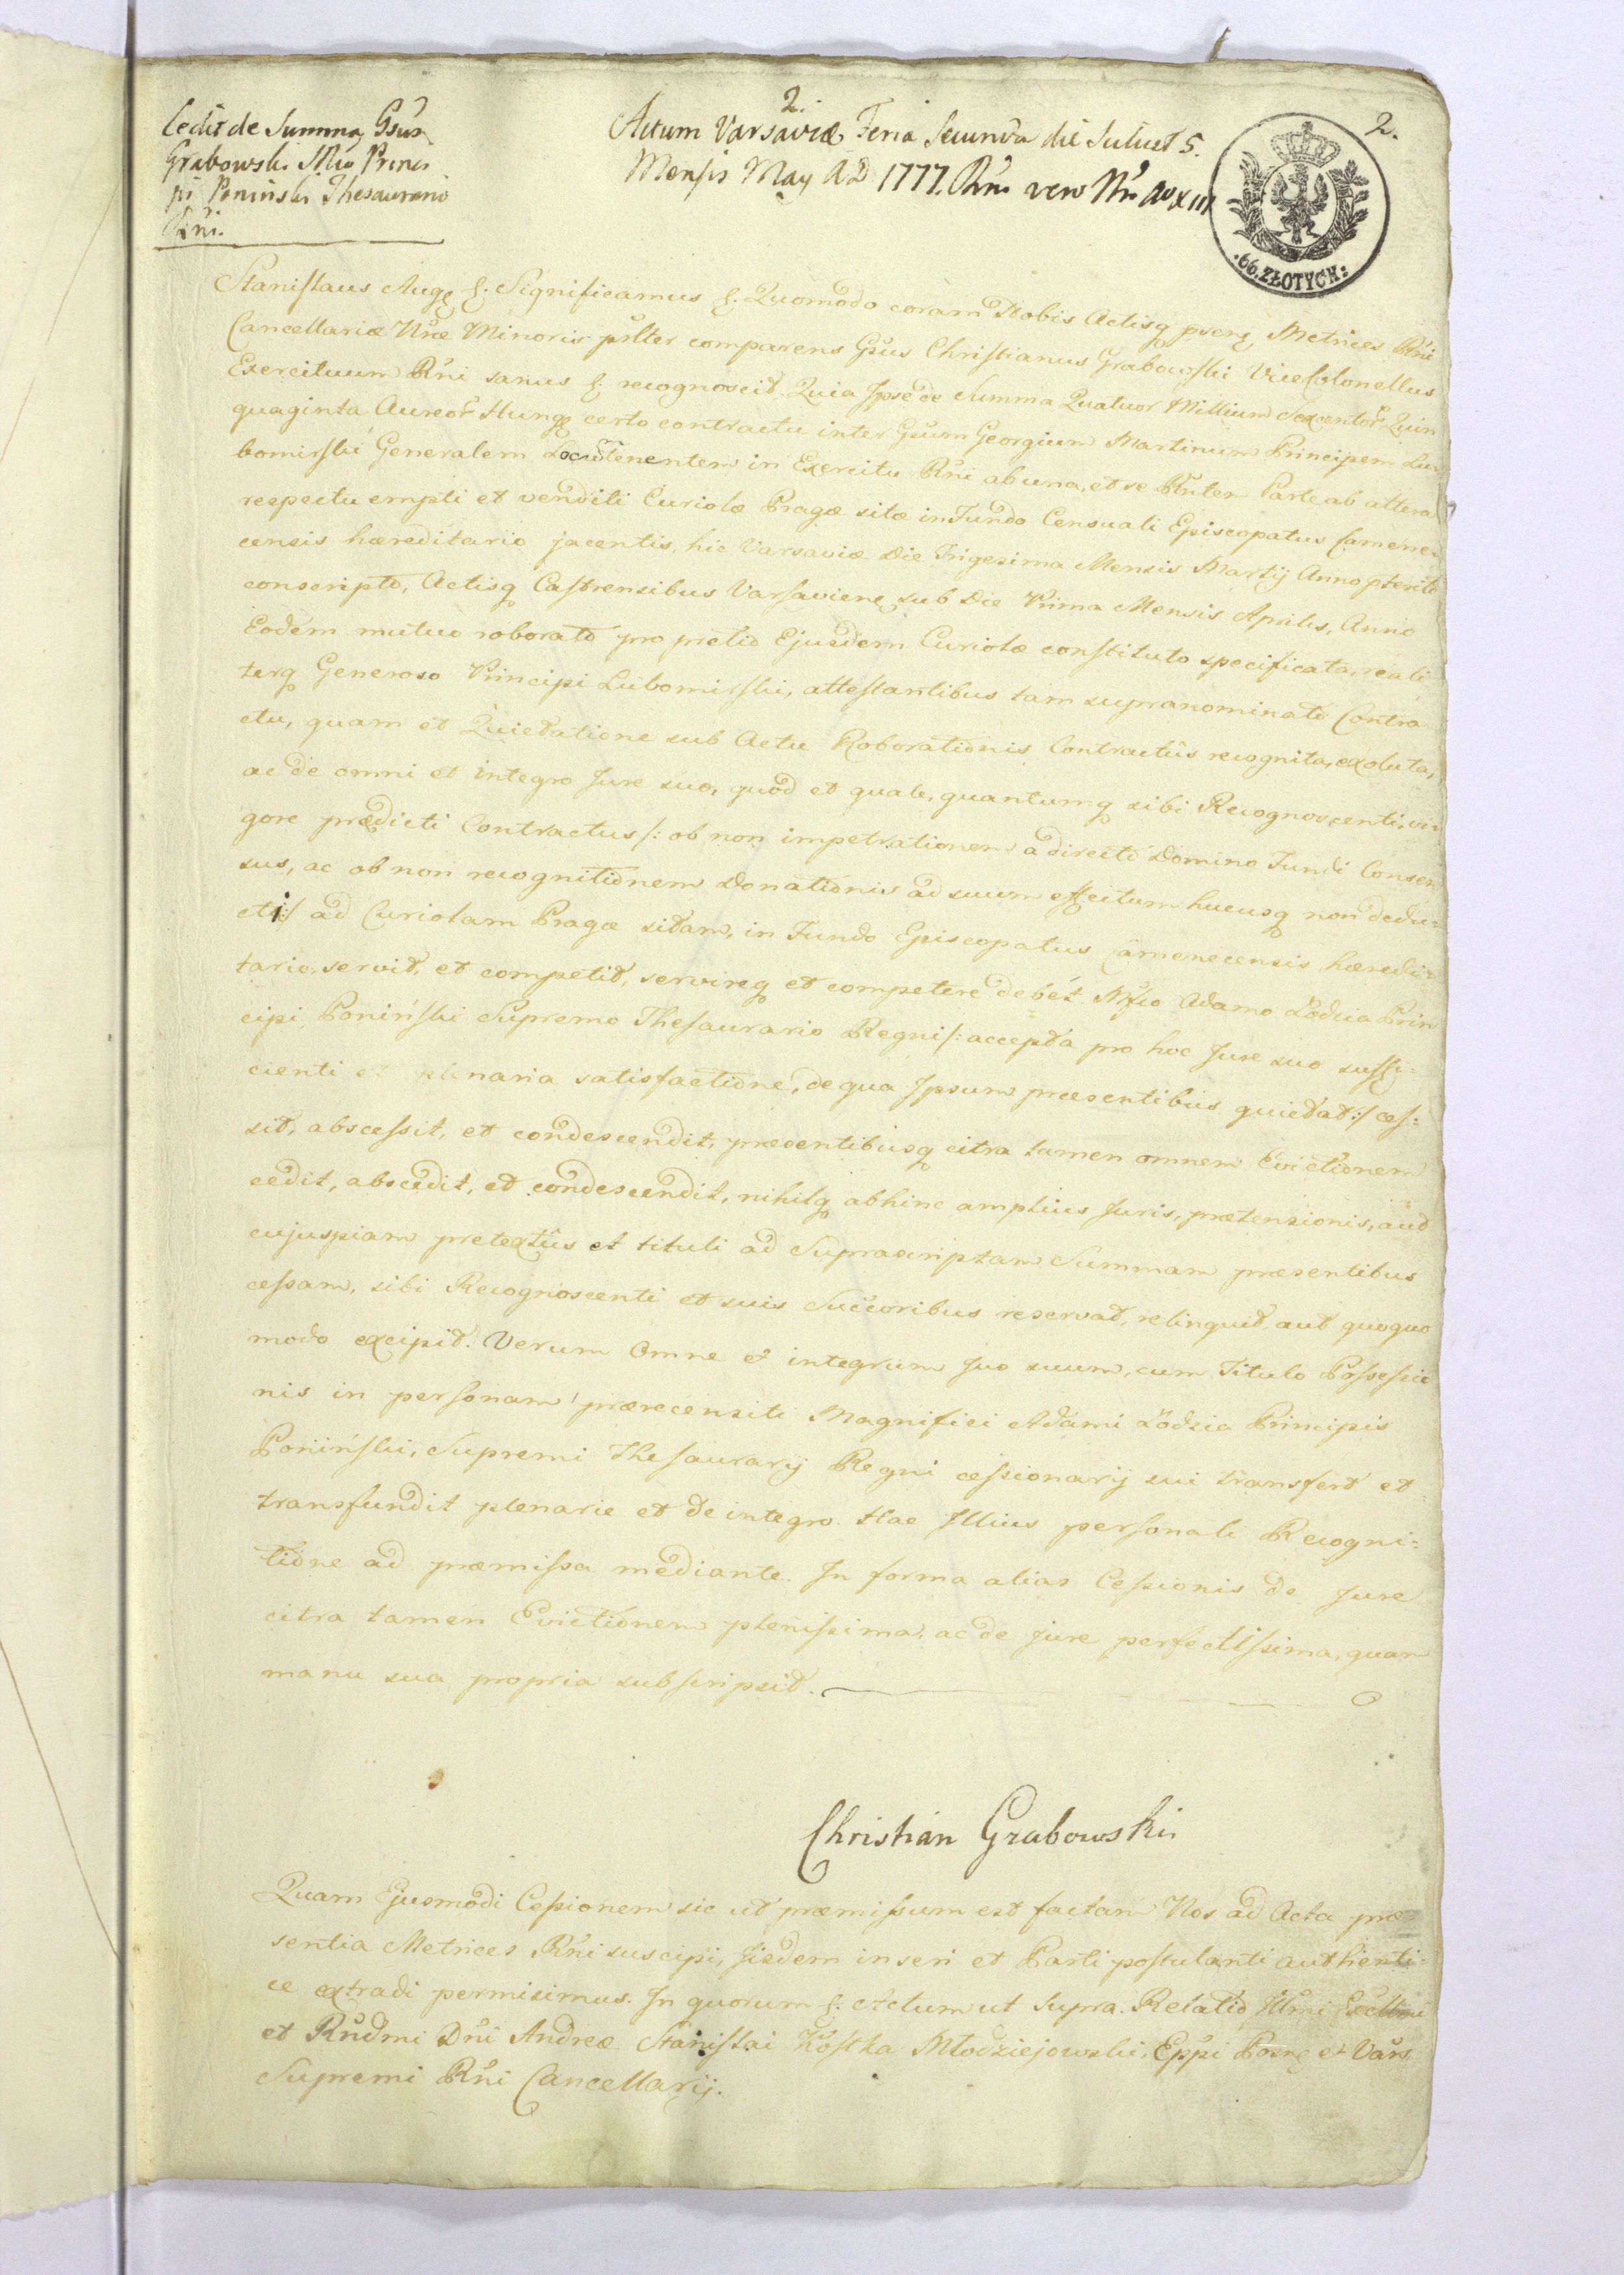 2.
2.
Cedit de Summa Gsus
Grabowski Mco Princi
pi Poninski Thesaurario
Rni.
Actum Varsaviæ Feria Secunda die Scilicet 5.
Mensis May AD 1777. Rni vero Nri Ao XIII
.66. ZŁOTYCH:
Stanislaus Aug9 &. Significamus &. Quomodo coram Nobis Actisq3 psen9 Metrices Rni
Cancellariæ Nræ Minoris psliter comparens Gsus Christianus Grabowski ViceColonellus
Exercituum Rni sanus &. recognoscit. Quia Ipse de Summa Quatuor Millium Sexcentor Quin
quaginta Aureor Hung9 certo contractu inter Gsum Georgium Martinum Principem Lu=
bomirski Generalem Locutenentem in Exercitu Rni ab una, et se Rnten Parte ab altera
respectu empti et venditi Curiolæ Pragæ sitæ in Fundo Censuali Episcopatus Camene=
censis hæreditario jacentis, hic Varsaviæ Die Trigesima Mensis Martij Anno pterito
conscripto, Actisq3 Castrensibus Varsavien9 sub Die Prima Mensis Aprilis, Anno
Eodem mutuo roborato pro pretio Ejusdem Curiolæ constituto specificata, reali
terq3 Generoso Principi Lubomirski, attestantibus tam supranominato Contra
ctu, quam et Quietatione sub Actu Roborationis Contractûs recognita, exoluta,
ac de omni et integro Jure suo, quod et quale, quantumq3 sibi Recognoscenti, vi=
gore prædicti Contractus /: ob non impetrationem a directo Domino Fundi Consen
sus, ac ob non recognitionem Donationis ad suum effectum hucusq3 non dedu=
cti :/ ad Curiolam Pragæ sitam, in Fundo Episcopatus Camenecensis hæredi=
tario, servit, et competit, servireq3 et competere debet. Mfico Adamo Łodzia Prin
cipi Poniński Supremo Thesaurario Regni /: accepta pro hoc Jure suo suffi=
cienti et plenaria satisfactione, de qua Ipsum præsentibus quietat :/ ces=
sit, abscessit, et condescendit, præsentibusq3 citra tamen omnem Evictionem
cedit, abscedit, et condescendit, nihilq3 abhinc amplius Juris, prætensionis, aut
cujuspiam pretextûs et tituli ad Suprascriptam Summam præsentibus
cessam, sibi Recognoscenti et suis Succoribus reservat, relinquit, aut quoquo
modo excipit. Verum Omne et integrum Jus suum, cum Titulo Possessio
nis in personam præcensiti Magnifici Adami Łodzia Principis
Poniński, Supremi Thesaurarij Regni cessionarij sui transfert et
transfundit plenarie et de integro. Hac Illius personali Recogni=
tione ad præmissa mediante. In forma alias Cessionis de Jure
citra tamen Evictionem plenissima, ac de jure perfectissima, quam
manu sua propria subscripsit.
Christian Grabowski
Quam Ejusmodi Cessionem sic ut præmissum est factam Nos ad Acta præ=
sentia Metrices Rni suscipi, Jisdem inseri et Parti postulanti authenti=
ce extradi permisimus. In quorum &. Actum ut Supra. Relatio Illmi Excllmi
et Rndmi Dni Andreæ Stanislai Kostka Młodziejowski, Eppi Posn9 et Vars
Supremi Rni Cancellarij.